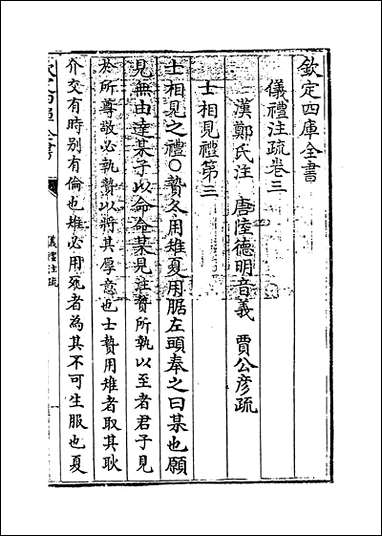 欽定四庫全書
儀禮注疏卷三
漢鄭氏注　唐陸德明音義　賈公彥疏
士相見禮第三
士相見之禮○贄冬用雉夏用腒左頭奉之曰某也願
見無由達某子以命命某見注贄所執以至者君子見
於所尊敬必執贄以將其厚意也士贄用雉者取其耿
介交有時別有倫也雉必用死者為其不可生服也夏
儀禮注疏